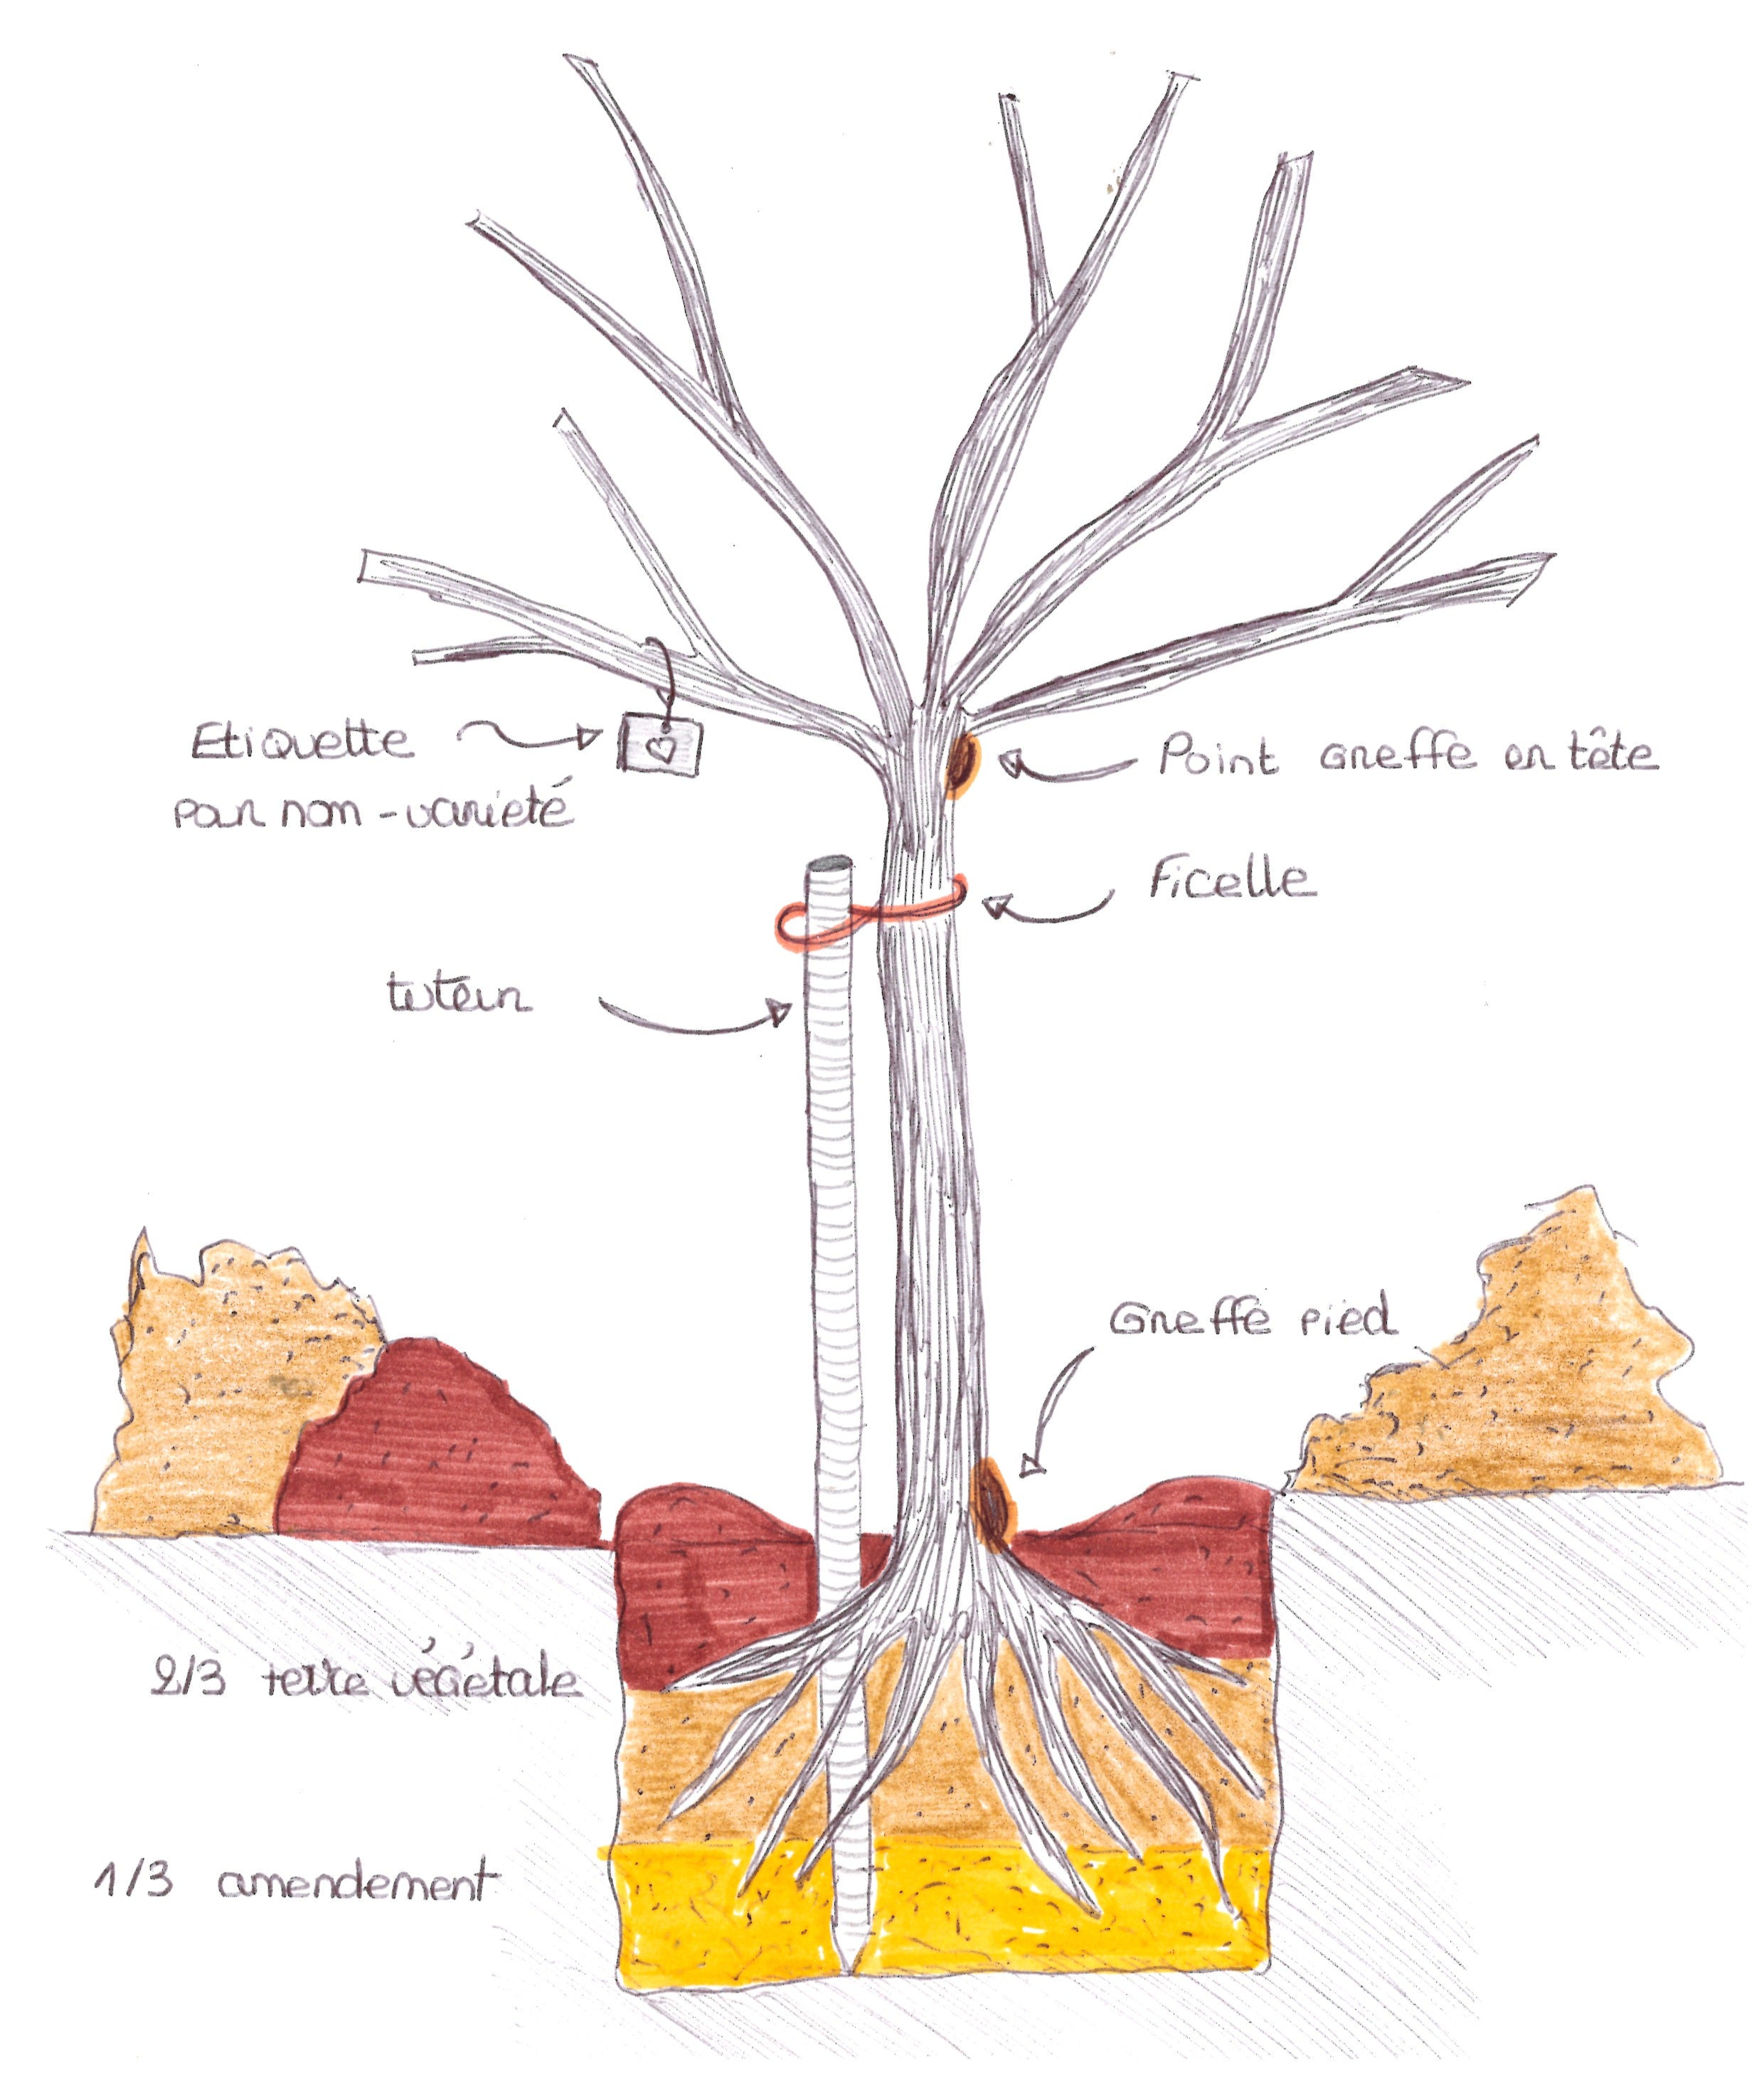 Etiquette
par nom-variété
Point Greffe en tête
Ficelle
tuteur
Greffe pied
2/3 terre végétale
1/3 amendement